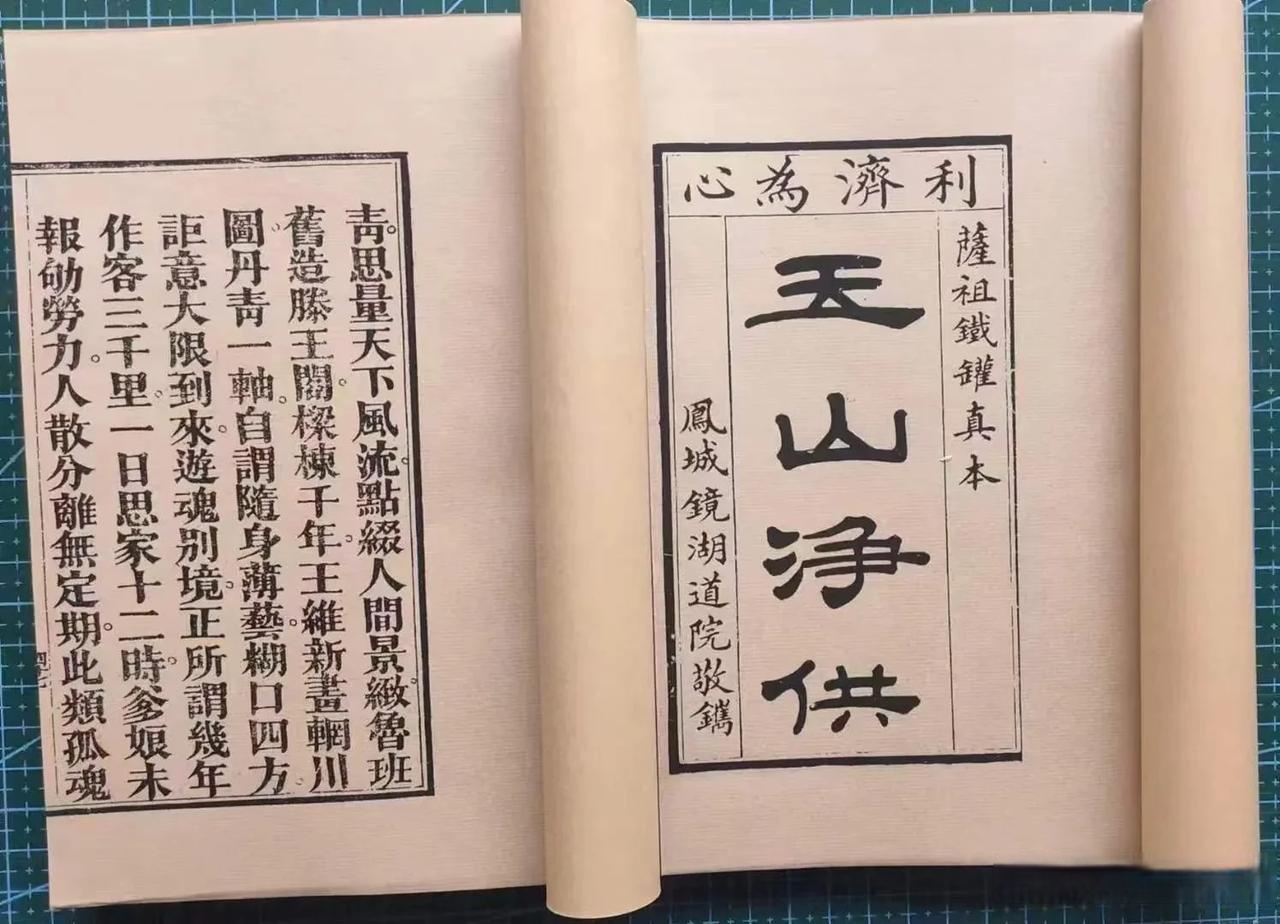 利濟為心
薩祖鐵罐真本
玉山浄供
鳳城鏡湖道院敬鐫
靑。思量天下風流。點綴人間景緻。魯班
舊造滕王閣。樑棟千年。王維新畫輞川
圖。丹靑一軸。自謂隨身薄藝。糊口四方。
詎意大限到來。遊魂別境。正所謂幾年
作客三千里。一日思家十二時。爹娘未
報劬勞力。人散分離無定期。此類孤魂